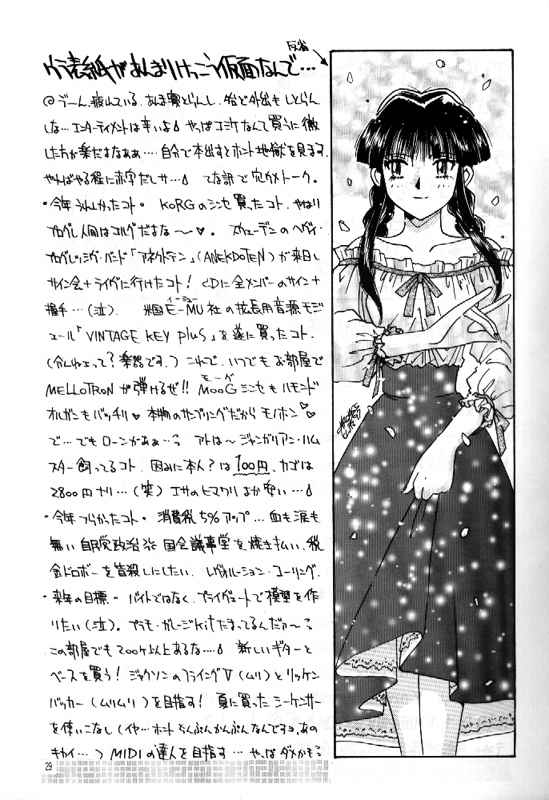 ウラ表紙があんまりけっこう仮面なんで…
反省
@ゔーん、疲れている。あま寝とらんし、殆ど外出もしとらん
しな…エンターテイメントは辛いよ♪ やっぱコミケなんて買うに徹
した方が楽だよなぁぁ…。自分で本出すとホント地獄を見ます。
やればやる程に赤字だしサ…♪ てな訳で穴うめトーク。
・今年うれしかったコト。 KORGのシンセ買ったコト。やはり
プログレ人間はコルグだよな〜♥。・スウェーデンのヘヴィ・
プログレッシヴ・バンド「アネクドテン」(ANEKDOTEN)が来日し
サイン会+ライヴに行けたコト! CDに全メンバーのサイン+
握手…(泣)。 米国E-MU社の拡張用音源モジ
イーミュー
ュール「VINTAGE KEY Plus」を遂に買ったコト。
(今んねぇって?楽器です。)これで、いつでもお部屋で
MELLOTRONが弾けるぜ!! MOOGシンセもハモンド
モーグ
オルガンもバッチリ♥ 本物のサンプリングだからモノホン♥
で…でもローンがあぁ〜 アトは〜ジャンガリアン・ハム
スター飼ってるコト。因みに本人?は100円、カゴは
2800円ナリ…(笑)エサのヒマワリより安い…♪
・今年つらかったコト。 消費税5%アップ…血も涙も
無い自民党政治 国会議事堂を焼き払い、税
金ドロボーを皆殺しにしたい。レヴォルーション・コーリング。
・来年の目標。 バイトではなく、プライヴェートで模型を作
りたい(泣)。プラモ・ガレージkitたまってるんだァ〜
この部屋でも200ヶ以上あるな…♪ 新しいギターと
ベースを買う!ジャクソンのフライングV(ムリ)とリッケン
バッカー(ムリムリ)を目指す!夏に買ったシーケンサー
を使いこなし(イヤ…ホントちんぷんかんぷんなんですョ、あの
キカイ…)MIDIの達人を目指す…やっぱダメかも
29